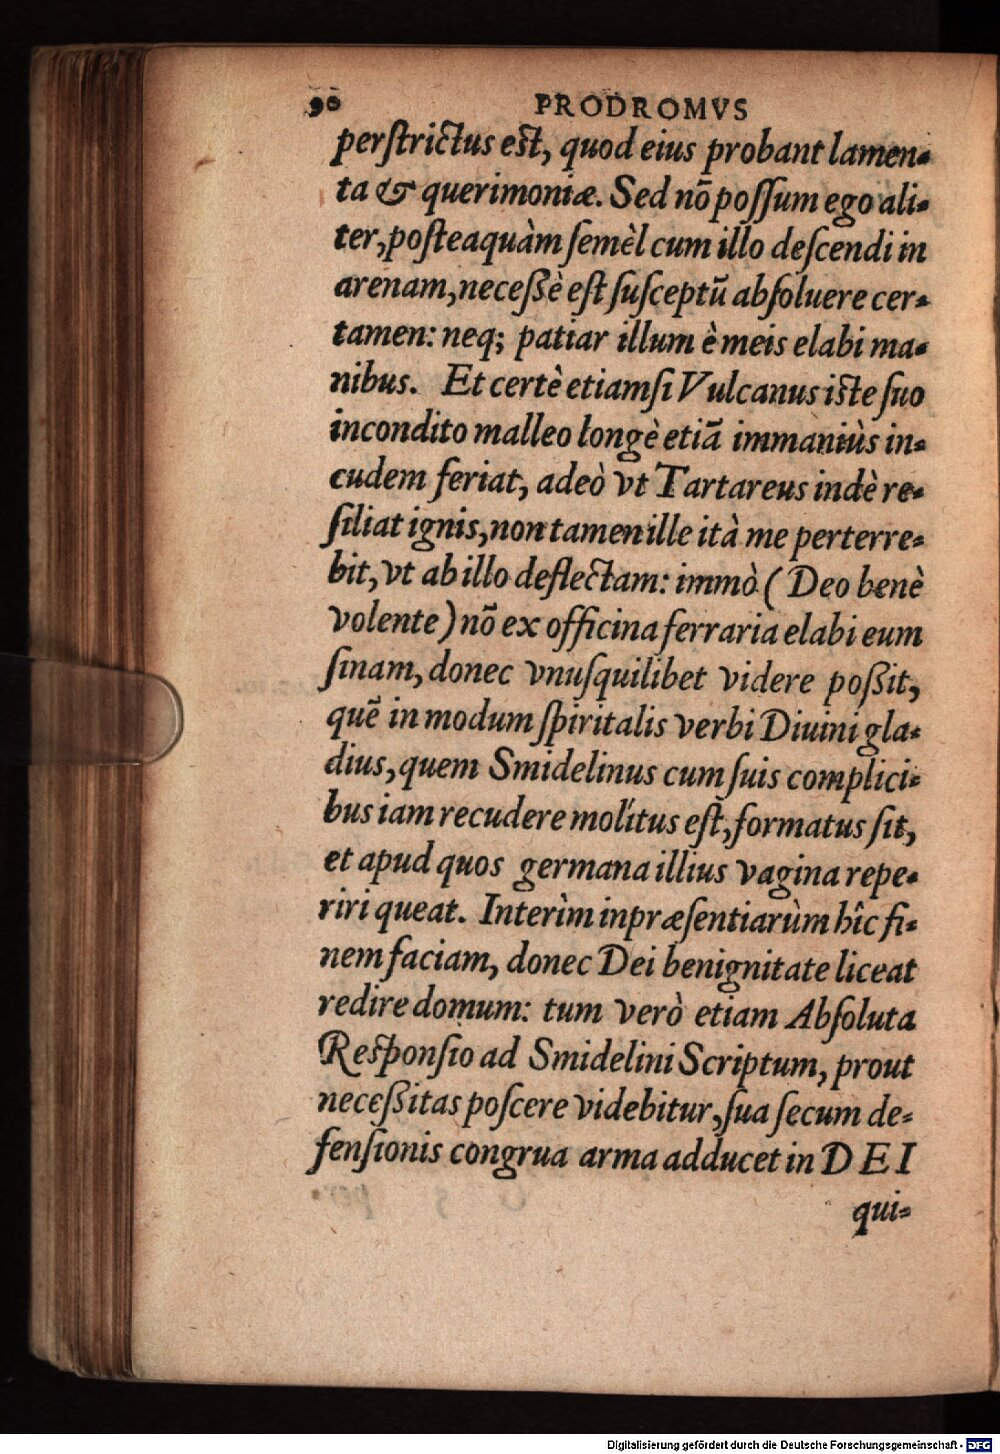 90 PRODROMVS
perſtrictus eſt, quod eius probant lamen-
ta & querimoniæ. Sed nō poſſum ego ali-
ter, poſteaquàm ſemèl cum illo deſcendi in
arenam, neceßè eſt ſuſceptū abſoluere cer-
tamen: neq; patiar illum è meis elabi ma-
nibus. Et certè etiamſi Vulcanus iſte ſuo
incondito malleo longè etiā immaniùs in-
cudem feriat, adeò vt Tartareus indè re-
ſiliat ignis, non tamen ille ità me perterre-
bit, vt ab illo deflectam: immò (Deo benè
volente) nō ex officina ferraria elabi eum
ſinam, donec vnuſquilibet videre poßit,
quē in modum ſpiritalis verbi Diuini gla-
dius, quem Smidelinus cum ſuis complici-
bus iam recudere molitus eſt, formatus ſit,
et apud quos germana illius vagina repe-
riri queat. Interìm inpræſentiarùm hîc fi-
nem faciam, donec Dei benignitate liceat
redire domum: tum verò etiam Abſoluta
Reſponſio ad Smidelini Scriptum, prout
neceßitas poſcere videbitur, ſua ſecum de-
fenſionis congrua arma adducet in DEI
qui-
Digitalisierung gefördert durch die Deutsche Forschungsgemeinschaft - DFG